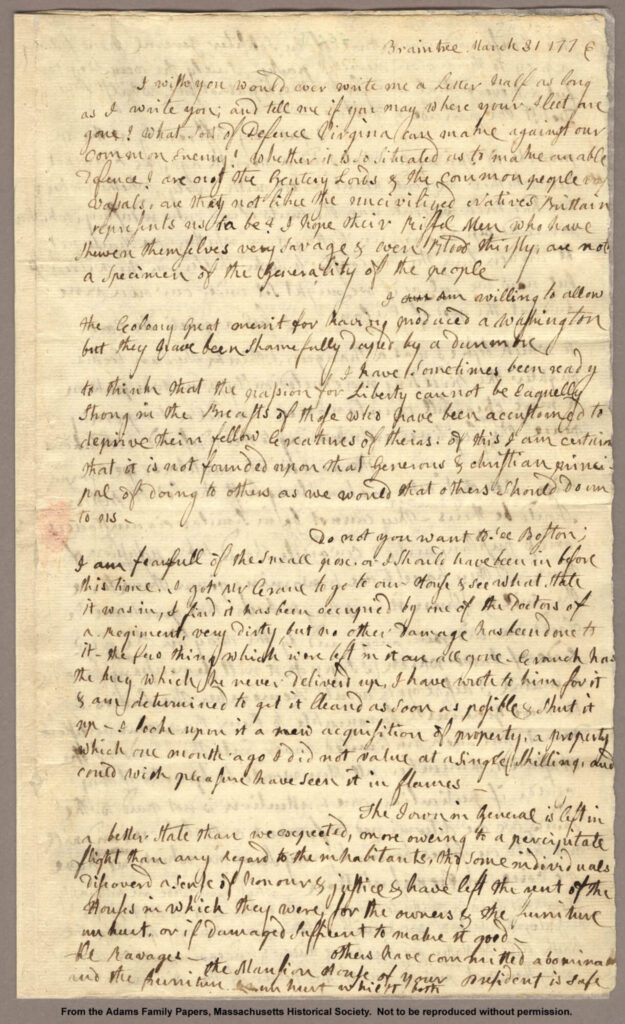 Braintree March 31 1776
I wish you would ever write me a Letter half as long
as I write you; and tell me if you may where your Fleet are
gone? What sort of Defence Virginia can make against our
common Enemy? Whether it is so situated as to make an able
Defence? are not the Gentery Lords & the common people
vassals, are they not like the uncivilized Natives Brittain
represents us to be? I hope their Riffel Men who have
shewen themselves very savage & even Blood thirsty, are not
a specimen of the Generality of the people
I am willing to allow
the Colony great merrit for having produced a Washington
but they have been shamefully duped by a Dunmore
I have sometimes been ready
to think that the passion for Liberty cannot be Eaquelly
Strong in the Breasts of those who have been accustomed to
deprive their fellow Creatures of theirs. of this I am certain
that it is not founded upon that generous & christian princi
pal of doing to others as we would that others should do un
to us -
Do not you want to see Boston;
I am fearfull of the small pox, or I should have been in before
this time. I got Mr Crane to go to our House & see what state
it was in, I find it has been occupied by one of the Doctors of
a Regiment, very dirty, but no other Damage has been done to
it - the few things which were left in it are all gone - Cranch has
the key which he never deliverd up, I have wrote to him for it
& am determined to get it cleand as soon as posible & shut it
up - I look upon it a new acquisition of property, a property
which one month ago I did not value at a single Shilling, and
could with pleasure have seen it in flames -
The Town in General is left in
a better state than we expected, more owing to a percipitate
flight than any Regard to the inhabitants, tho some individuals
discoverd a sense of honour & justice & have left the rent of the
Houses in which they were, for the owners & the furniture
unhurt, or if damaged sufficent to make it good -
others have committed abomina
ble Ravages -
the Mansion House of your President is safe
and the furniture unhurt whilst both
From the Adams Family Papers, Massachusetts Historical Society. Not to be reproduced without permission.